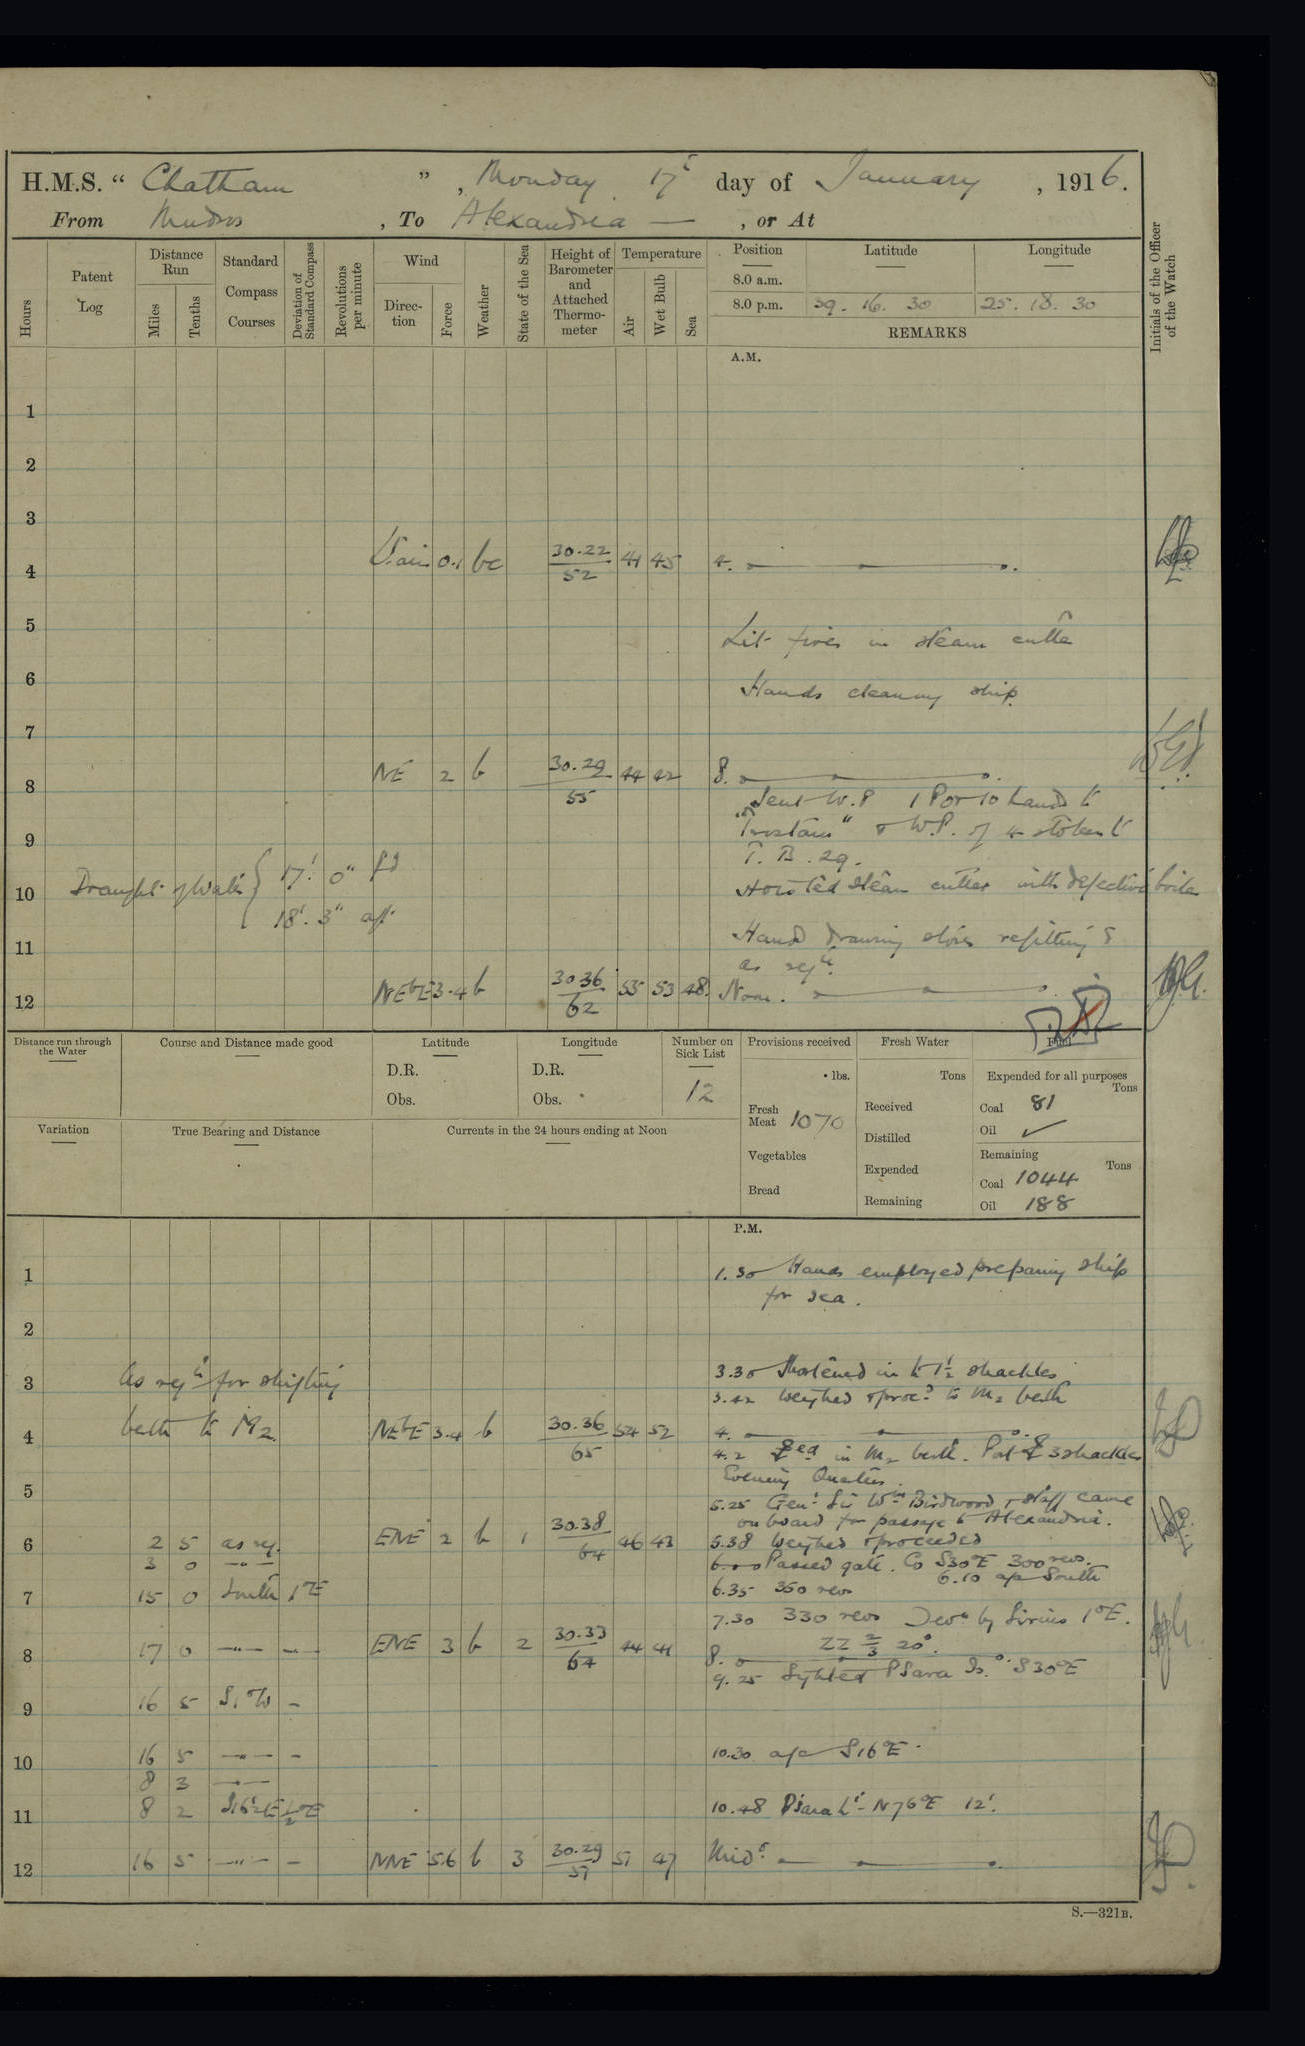 H.M.S. “ Chatham ” , Monday 17th day of January , 1916.
From Mudros , To Alexandria — , or At
Hours
Patent Log
Distance Run
Miles
Tenths
Standard Compass Courses
Deviation of Standard Compass
Revolutions per minute
Wind
Direc-tion
Force
Weather
State of the Sea
Height of Barometer and Attached Thermo-meter
Temperature
Air
Wet Bulb
Sea
Position
Latitude
Longitude
8.0 a.m.
8.0 p.m. 39. 16. 30 25. 18. 30
REMARKS
Initials of the Officer of the Watch
A.M.
1
2
3
4 0.1 bc 30.22 52 45 4.
5 Lit fires in steam cutter
6 Hands cleaning ship.
7
8 NE 2 b 30.29 55 44 42 8.
Sent W.P 1 P or 10 hands to
9 & W.P. of 4 stokers to
T. B. 29.
Draught of Water { 17' 0" fd
10 Hoisted steam cutter with defective boiler
18' 3" aft
11 Hands drawing stores refitting &
as reqte.
12 NEbE 3-4 b 30 36 62 55 53 48. Noon.
Distance run through the Water
Course and Distance made good
Latitude
D.R.
Obs.
Longitude
D.R.
Obs.
Number on Sick List
12
Provisions received
lbs.
Fresh Meat 1070
Vegetables
Bread
Fresh Water
Tons
Received
Distilled
Expended
Remaining
Fuel
Expended for all purposes
Tons
Coal 81
Oil ✓
Remaining
Tons
Coal 1044
Oil 188
Variation
True Bearing and Distance
Currents in the 24 hours ending at Noon
P.M.
1 1.30 Hands employed preparing ship
for sea.
2
3.30 Shortened in to 1½ shackles
3 As reqd for shifting
3.42 Weighed & procd to M2 berth
4 berth to M2. NEbE 3-4 b 30.36 65 54 52 4.
4.2 in M2 berth. Port 3 shackles
Evening Quarters.
5
5.25 Genl Sir Wm Birdwood & staff came
on board for passage to Alexandria.
6 2 5 as req. ENE 2 b 1 30.38 64 46 43 5.38 Weighed & proceeded
3 0 —"— 6.0 Passed gate. Co S30°E 300 revs.
6.10 a/c South
7 15 0 South 1°E 6.35 350 revs
7.30 330 revs Devn by Sirius 1°E.
8 17 0 —"— —"— ENE 3 b 2 30.33 64 44 41 8.
ZZ 2/3 20°.
9.25 Sighted Psara Is. S30°E
9 16 5 S1°W –
10 16 5 —"— – 10.30 a/c S16°E
8 3 —"—
11 8 2 S16½E ½°E 10.48 Psara Lt - N76°E 12'.
12 16 5 —"— – NNE 5.6 b 3 30.29 57 51 47 Midt.
S.—321B.